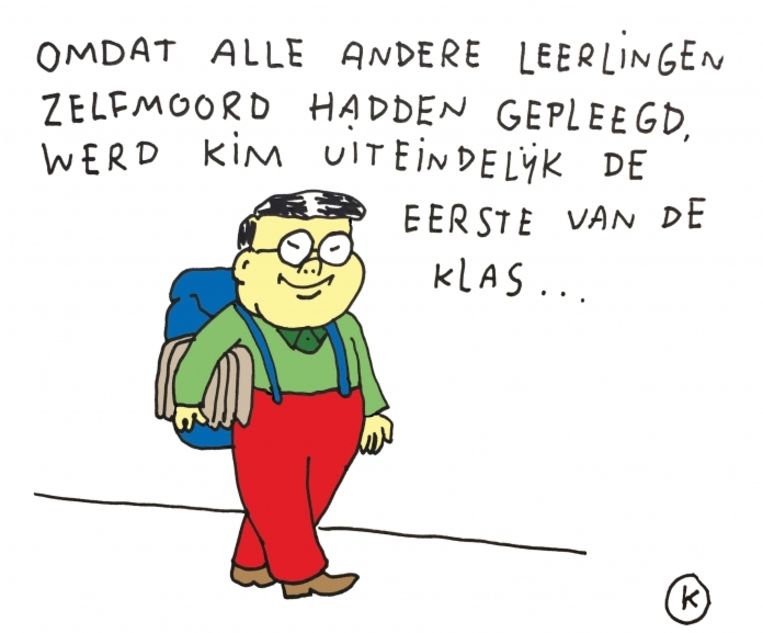 OMDAT ALLE ANDERE LEERLINGEN
ZELFMOORD HADDEN GEPLEEGD,
WERD KIM UITEINDELIJK DE
EERSTE VAN DE
KLAS...
K